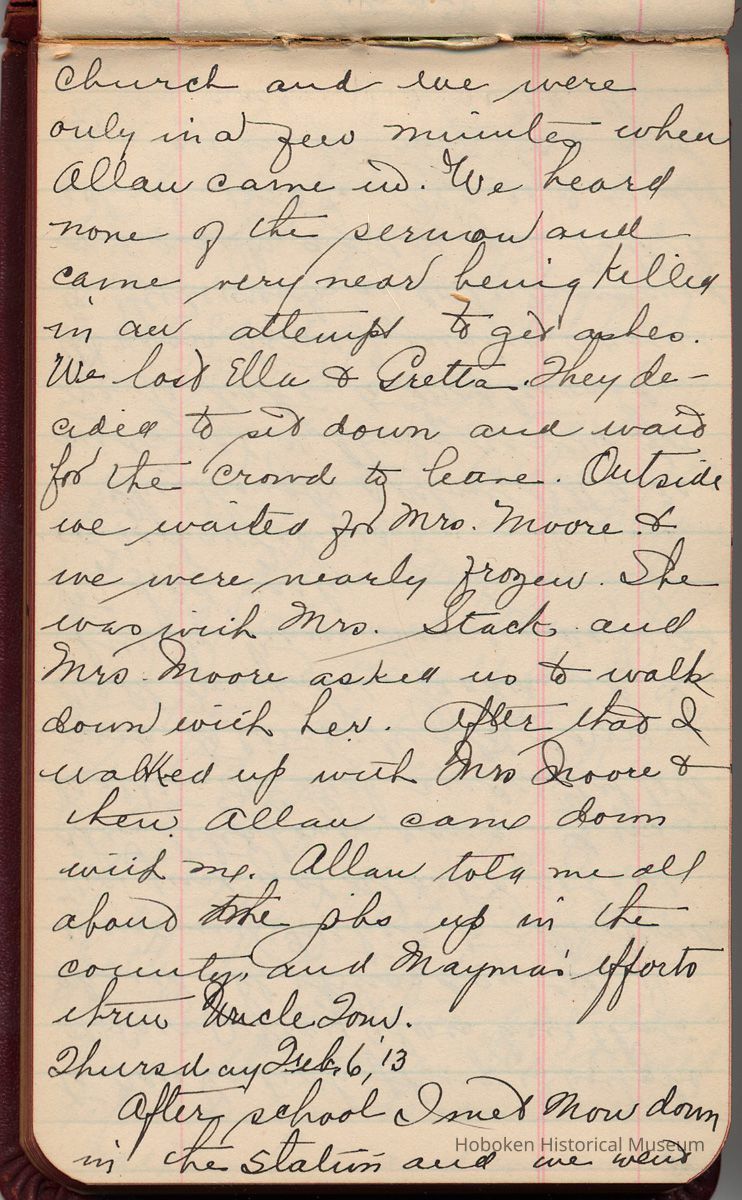 church and we were
only in a few minutes when
Allan came in. We heard
none of the sermon and
came very near being killed
in an attempt to get ashes.
We lost Ella & Gretta. They de-
cided to sit down and wait
for the crowd to leave. Outside
we waited for Mrs. Moore &
we were nearly frozen. She
was with Mrs. Stack and
Mrs. Moore asked us to walk
down with her. After that I
walked up with Mrs Moore &
then Allan came down
with me. Allan told me all
about the jobs up in the
county, and Mayma's efforts
thru Uncle Tom.
Thursday Feb. 6, '13
After school I met Mow down
in the station and we went
Hoboken Historical Museum